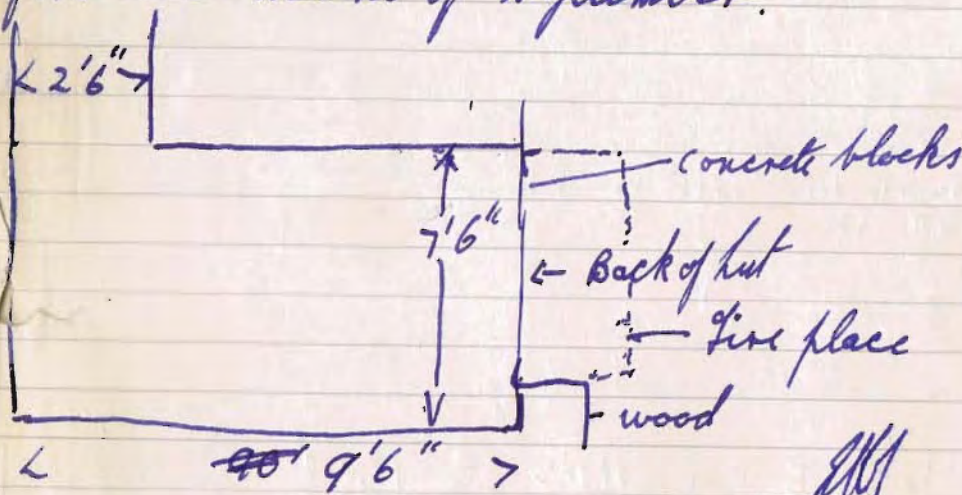 2'6"
concrete blocks
7'6"
Back of hut
Fire place
wood
9'6"